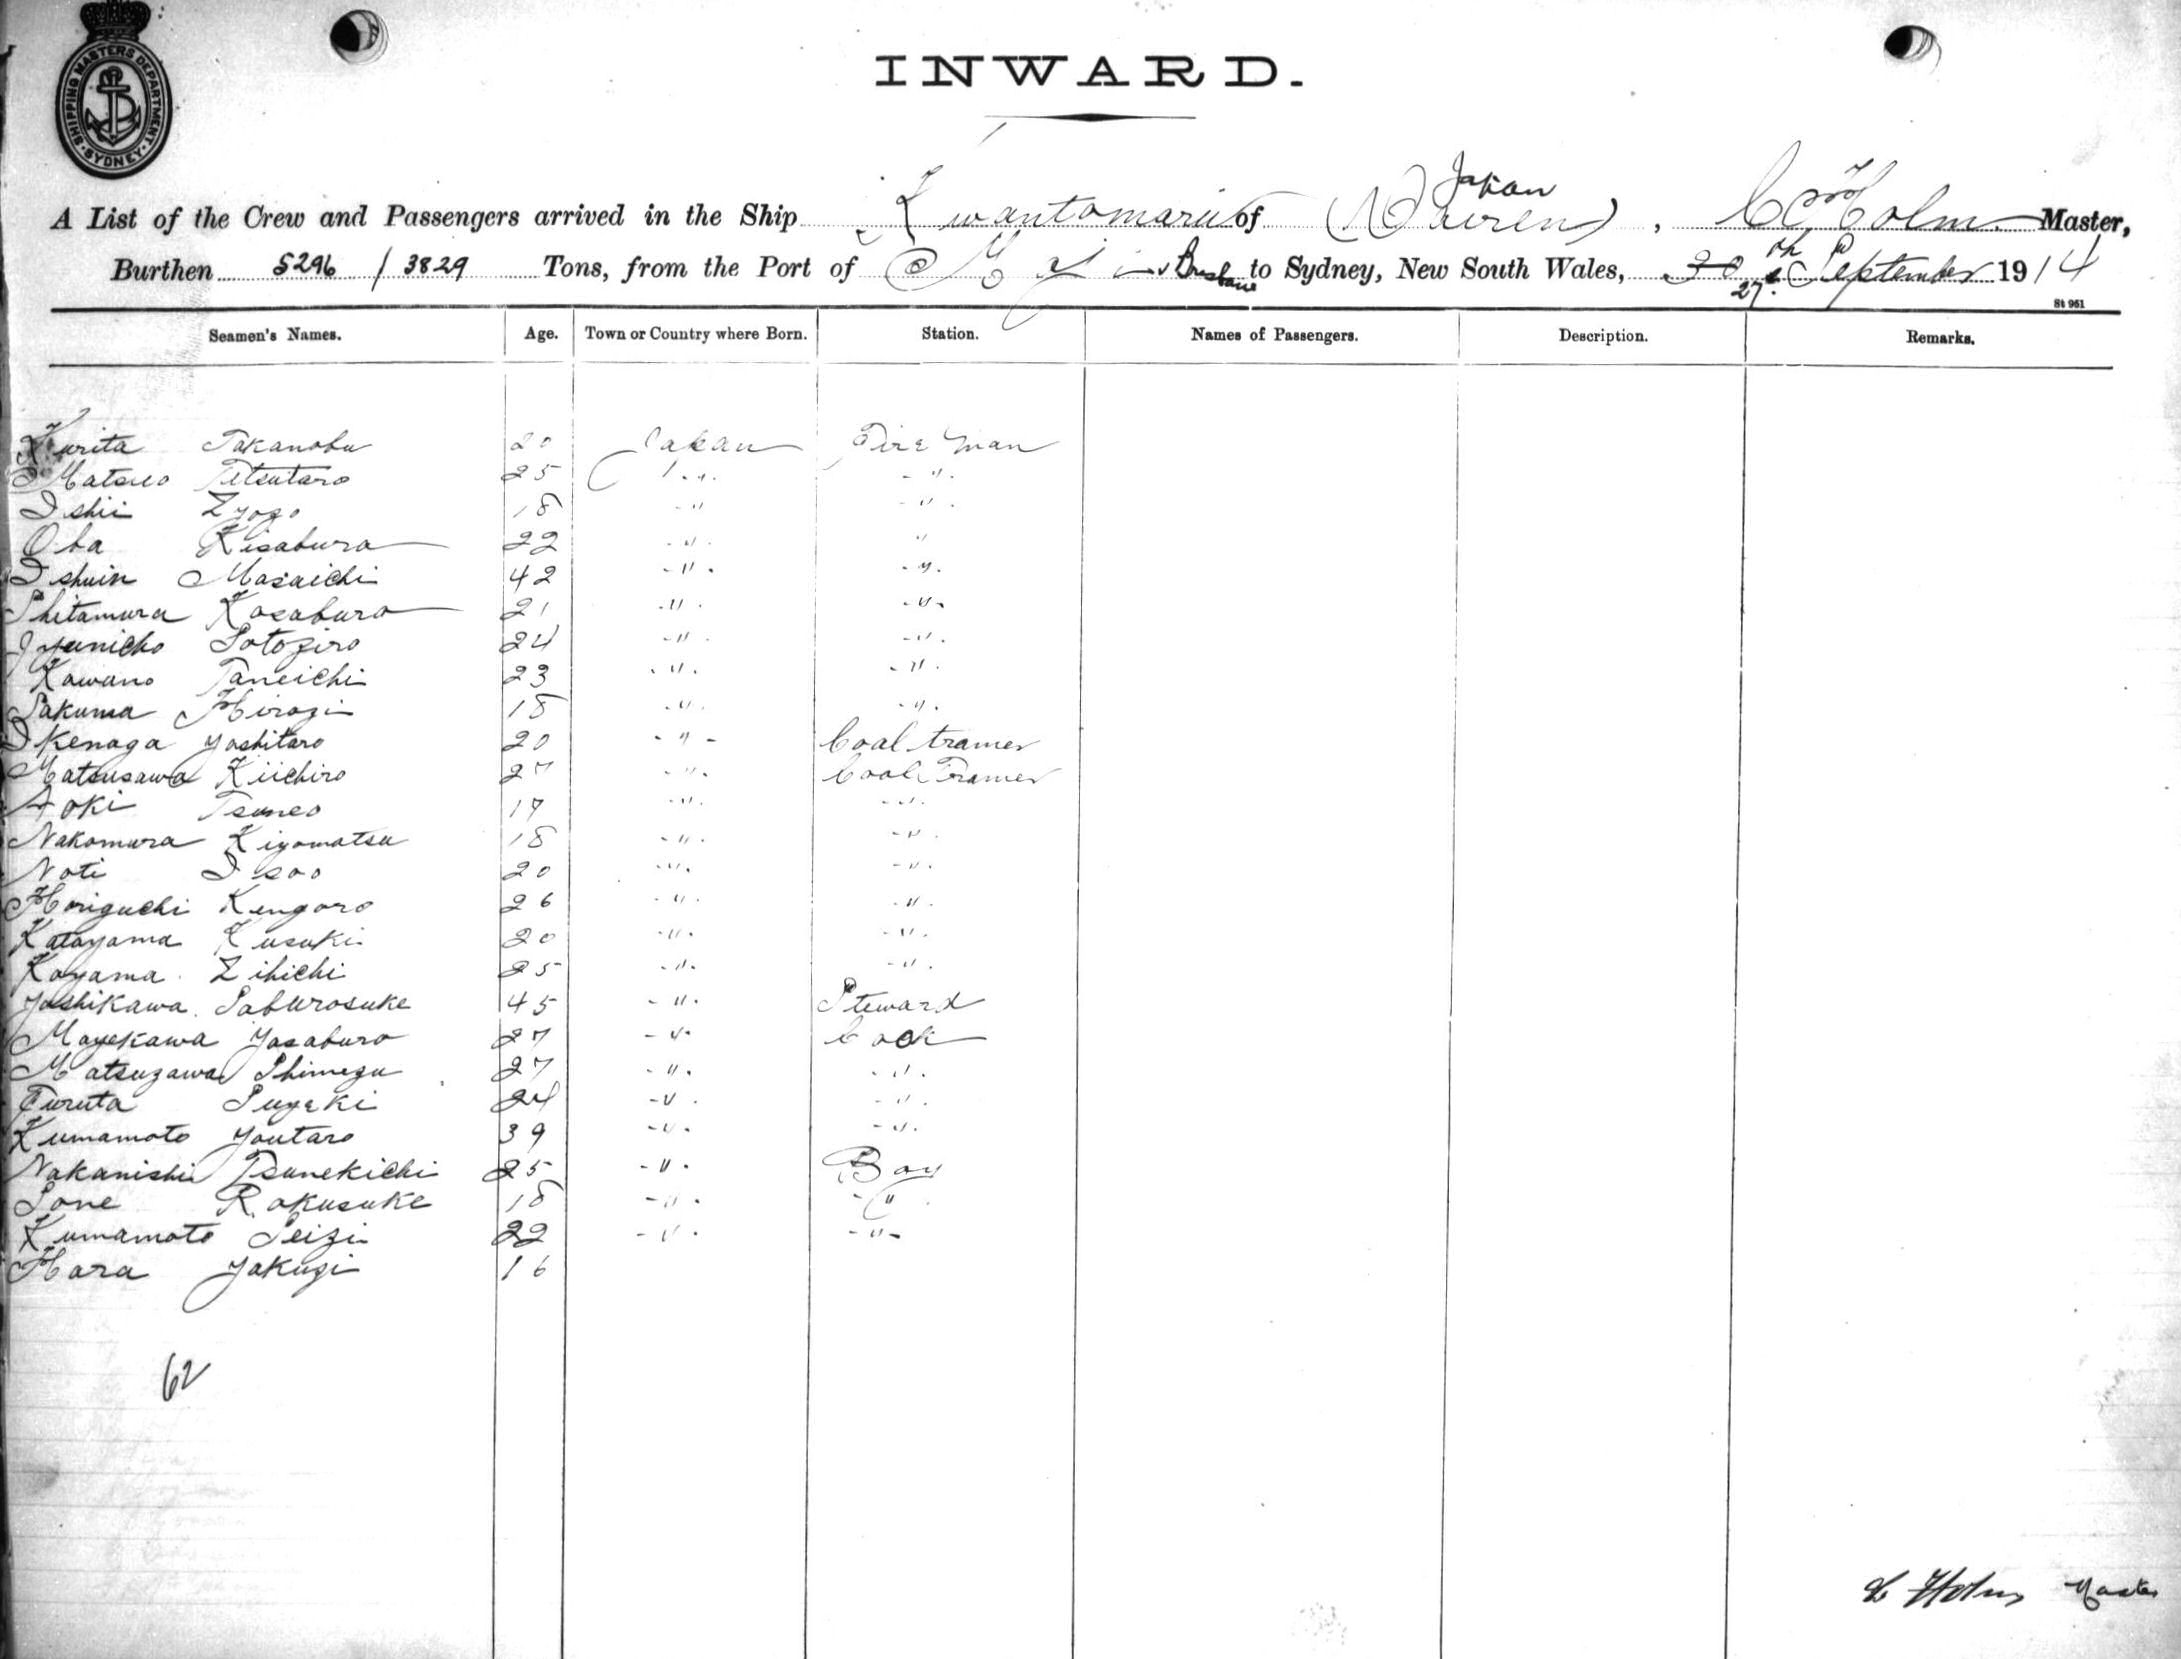 SHIPPING MASTERS DEPARTMENT. SYDNEY.
INWARD.
Japan
A List of the Crew and Passengers arrived in the Ship Kwantomaru of (Dairen), C Holm Master,
Burthen 5296 / 3829 Tons, from the Port of Moji & Brisbane to Sydney, New South Wales, 20 th September 1914
27.
St 951
Seamen's Names. Age. Town or Country where Born. Station. Names of Passengers. Description. Remarks.
Kurita Takanobu 20 Japan Fire man
Matsuo Tetsutaro 25 " "
Ishii Zyogo 18 " "
Oba Kisaburo 22 " "
Ishuin Masaichi 42 " "
Shitamura Kosaburo 21 " "
Jyunicho Sotoziro 24 " "
Kawano Taneichi 23 " "
Sakuma Hirozi 18 " "
Ikenaga Yoshitaro 20 " Coal tramer
Matsusawa Kiichiro 27 " Coal Tramer
Aoki Tsuneo 17 " "
Nakamura Kiyomatsu 18 " "
Noti Isoo 20 " "
Horiguchi Kengoro 26 " "
Katayama Kusuki 20 " "
Koyama Zihichi 25 " "
Yoshikawa Saburosuke 45 " Steward
Mayekawa Yasaburo 27 " Cook
Matsuzawa Shimezu 27 " "
Furuta Suyeki 24 " "
Kumamoto Youtaro 39 " "
Nakanishi Tsunekichi 25 " Boy
Sone Rokusuke 18 " "
Kumamoto Seizi 22 " "
Hara Yakugi 16
62
C Holm Master